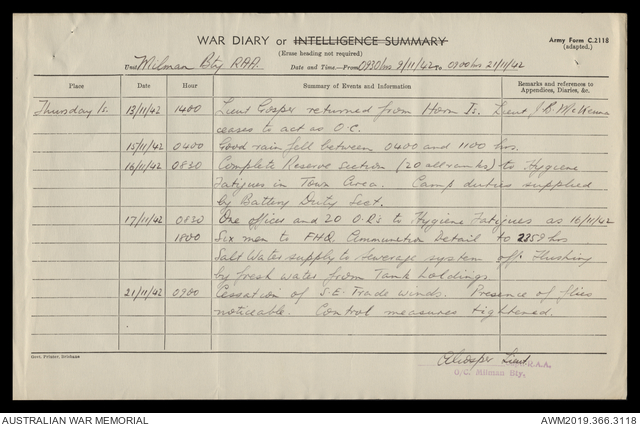 WAR DIARY or INTELLIGENCE SUMMARY
Army Form C.2118
(adapted.)
(Erase heading not required)
Unit Milman Bty RAA. Date and Time.—From 0930hrs 9/11/42 to 0900hrs 21/11/42
Place Date Hour Summary of Events and Information Remarks and references to
Appendices, Diaries, &c.
Thursday Is. 13/11/42 1400 Lieut Cosper returned from Horn Is. Lieut J.B. McKenna
ceases to act as O.C.
15/11/42 0400 Good rain fell between 0400 and 1100 hrs.
16/11/42 0830 Complete Reserve section (20 all ranks) to Hygiene
Fatigues in Town Area. Camp duties supplied
by Battery Duty Sect.
17/11/42 0830 One officer and 20 O.Rs to Hygiene Fatigues as 16/11/42
1800 Six men to FHQ Ammunition Detail to 2359 hrs
Salt Water supply to Sewerage system off. Flushing
by fresh water from Tank holdings.
21/11/42 0900 Cessation of S.E. Trade winds. Presence of flies
noticeable. Control measures tightened.
Govt. Printer, Brisbane
Cosper Lieut
R.A.A.
O/C. Milman Bty,
AUSTRALIAN WAR MEMORIAL
AWM2019.366.3118